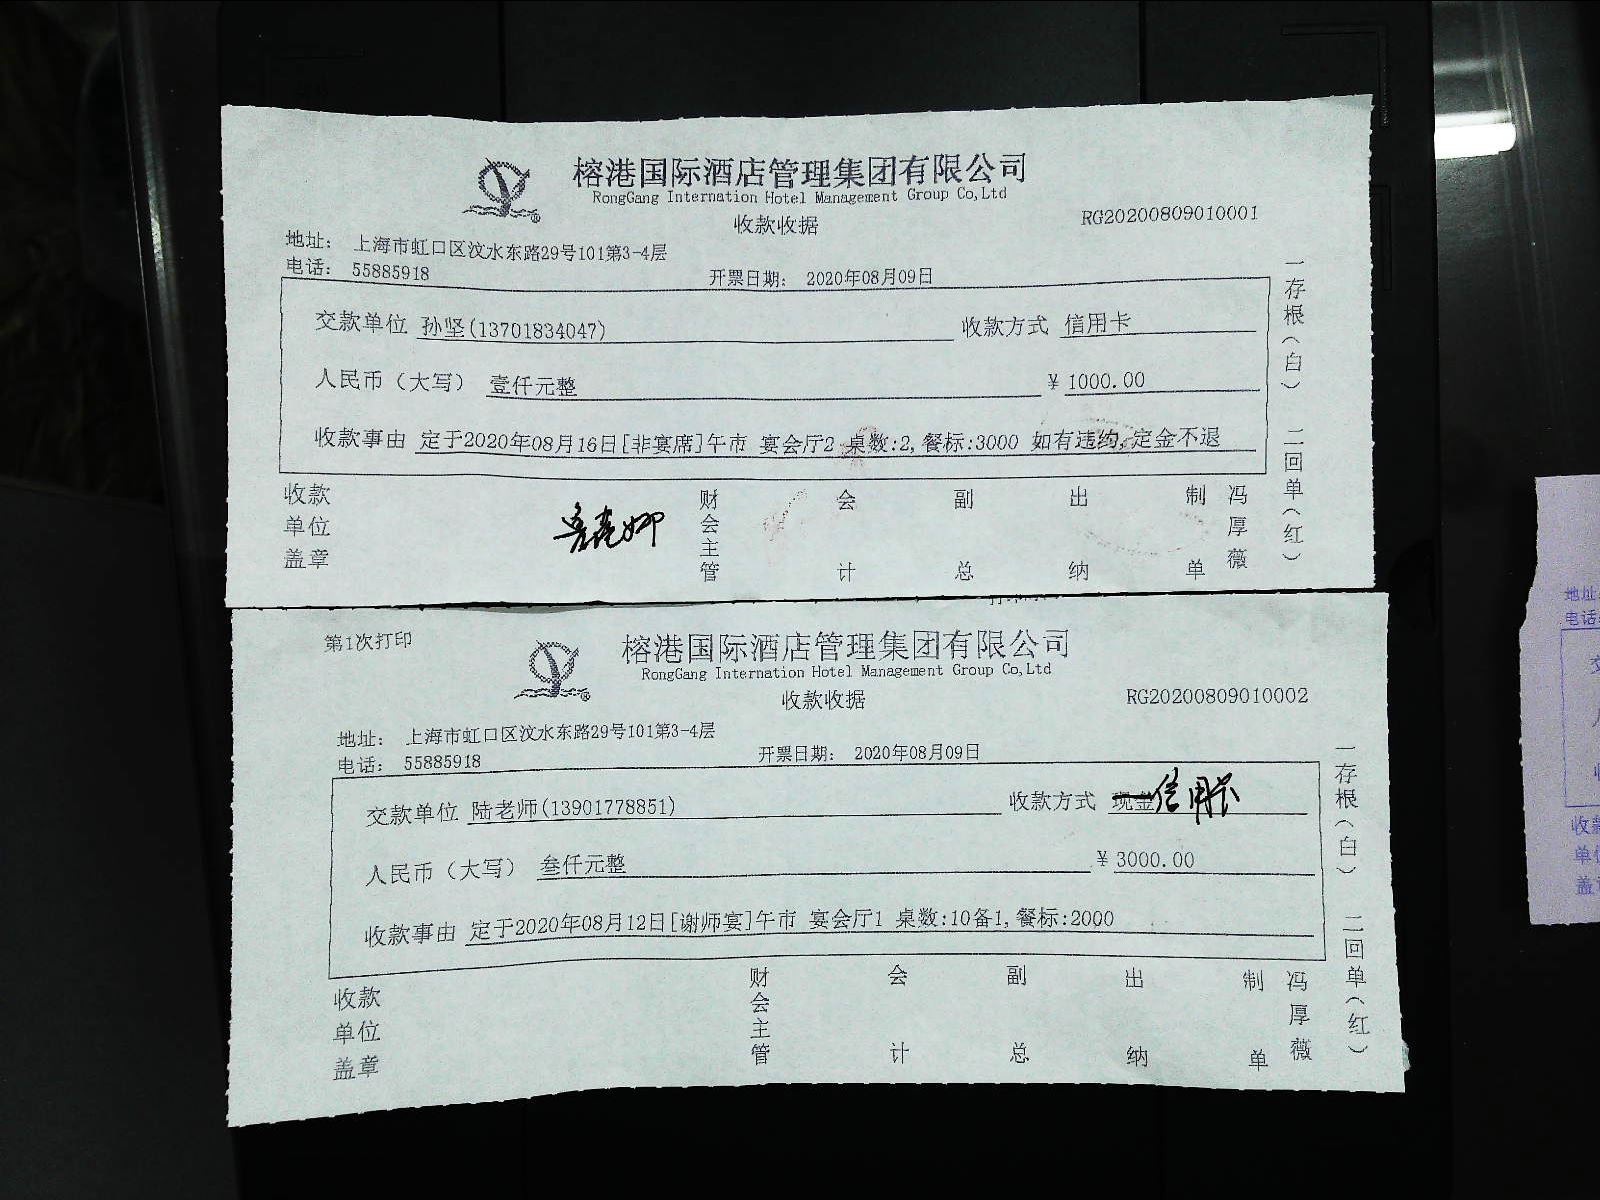 榕港国际酒店管理集团有限公司
RongGang Internation Hotel Management Group Co,Ltd
收款收据
RG20200809010001
地址： 上海市虹口区汶水东路29号101第3-4层
电话： 55885918
开票日期： 2020年08月09日
交款单位 孙坚(13701834047) 收款方式 信用卡
人民币（大写） 壹仟元整 ￥1000.00
收款事由 定于2020年08月16日[非宴席]午市 宴会厅2 桌数:2,餐标:3000 如有违约,定金不退
收款单位盖章 财会主管 会计 副总 出纳 制单 冯厚薇
一存根（白） 二回单（红）
第1次打印
榕港国际酒店管理集团有限公司
RongGang Internation Hotel Management Group Co,Ltd
收款收据
RG20200809010002
地址： 上海市虹口区汶水东路29号101第3-4层
电话： 55885918
开票日期： 2020年08月09日
交款单位 陆老师(13901778851) 收款方式 现金 信用卡
人民币（大写） 叁仟元整 ￥3000.00
收款事由 定于2020年08月12日[谢师宴]午市 宴会厅1 桌数:10备1,餐标:2000
收款单位盖章 财会主管 会计 副总 出纳 制单 冯厚薇
一存根（白） 二回单（红）
地址
电话
收款
单位